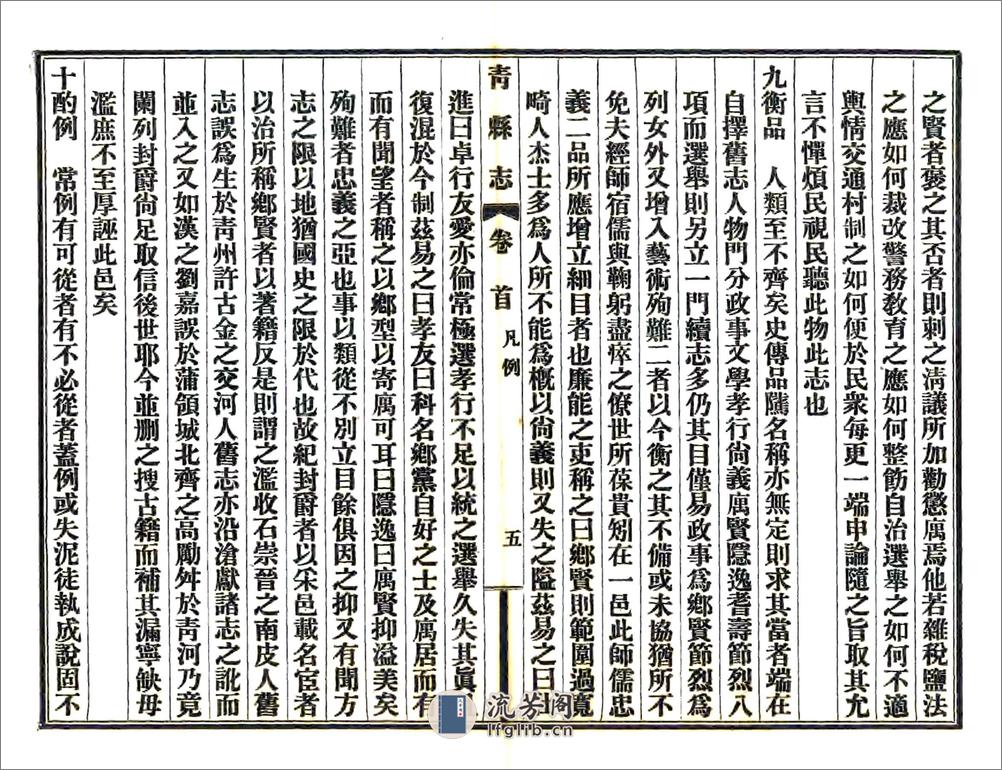 之賢者褒之其否者則刺之淸議所加勸懲寓焉他若雜稅鹽法
之應如何裁改警務敎育之應如何整飭自治選舉之如何不適
輿情交通村制之如何便於民衆每更一端申論隨之旨取其允
言不憚煩民視民聽此物此志也
九衡品　人類至不齊矣史傳品隲名稱亦無定則求其當者端在
自擇舊志人物門分政事文學孝行尙義寓賢隱逸耆壽節烈八
項而選舉則另立一門續志多仍其目僅易政事爲鄉賢節烈爲
列女外又增入藝術殉難二者以今衡之其不備或未協猶所不
免夫經師宿儒與鞠躬盡瘁之僚世所葆貴矧在一邑此師儒忠
義二品所應增立細目者也廉能之吏稱之曰鄉賢則範圍過寬
畸人杰士多爲人所不能爲槪以尙義則又失之隘茲易之曰仕
青縣志　卷首　凡例　五
進曰卓行友愛亦倫常極選孝行不足以統之選舉久失其眞
復混於今制茲易之曰孝友曰科名鄉黨自好之士及寓居而有
而有聞望者稱之以鄉型以寄寓可耳曰隱逸曰寓賢抑溢美矣
殉難者忠義之亞也事以類從不別立目餘俱因之抑又有聞方
志之限以地猶國史之限於代也故紀封爵者以采邑載名宦者
以治所稱鄉賢者以著籍反是則謂之濫收石崇晉之南皮人舊
志誤爲生於靑州許古金之交河人舊志亦沿滄獻諸志之訛而
並入之又如漢之劉嘉誤於蒲領城北齊之高勱舛於靑河乃竟
闌列封爵尙足取信後世耶今並删之搜古籍而補其漏寧缺毋
濫庶不至厚誣此邑矣
十酌例　常例有可從者有不必從者蓋例或失泥徒執成說固不
流芳阁
lfglib.cn